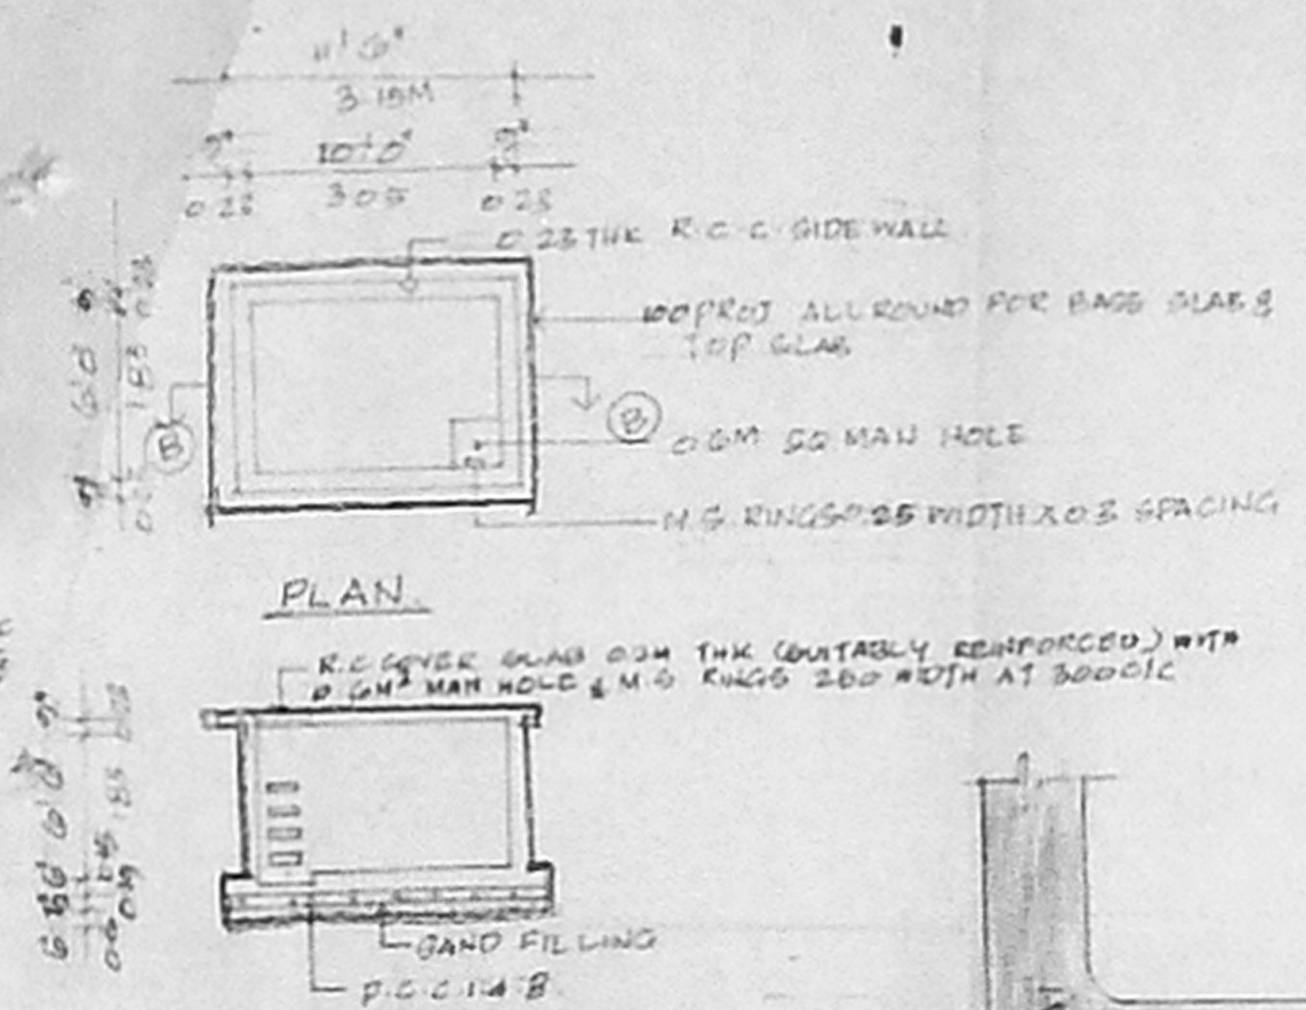 11' 6"
3.15M
9" 10'0" 9"
0.23 3.05 0.23
0.23 THK R.C.C. SIDE WALL
100 PROJ ALLROUND FOR BASE SLAB &
TOP SLAB
9" 6'0" 9"
0.23 1.83 0.23
B B
0.6M SQ MAN HOLE
M.S. RINGS 0.25 WIDTH X 0.3 SPACING
PLAN.
R.C COVER SLAB THK (SUITABLY REINFORCED) WITH
0.6M² MAN HOLE & M.S RINGS 250 WIDTH AT 300C/C
9" 6'0"
SAND FILLING
P.C.C 1:4:8